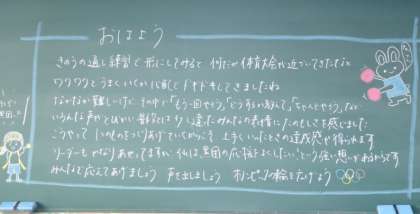 おはよう
きのうの通し練習で形にしてみると 何だか体育大会が近づいてきたなと
ワクワクとうまくいくか心配でドキドキしてきましたね
なかなか難しいけど その中で「もう一回やろう」「どうするか教えて」「ちゃんとやろう」など
いろんな声がとびかい 前とは少し違った みんなの表情にたのもしさを感じました
こうやって いのものをつくりあげていくからこそ 上手くいったときの達成感が得られます
リーダーもかなりあせってますが それは 黒団の応援をよくしたい という強い思いがあるからです
みんなで応えてあげましょう 声を出しましょう オリンピックの絵をたのもう